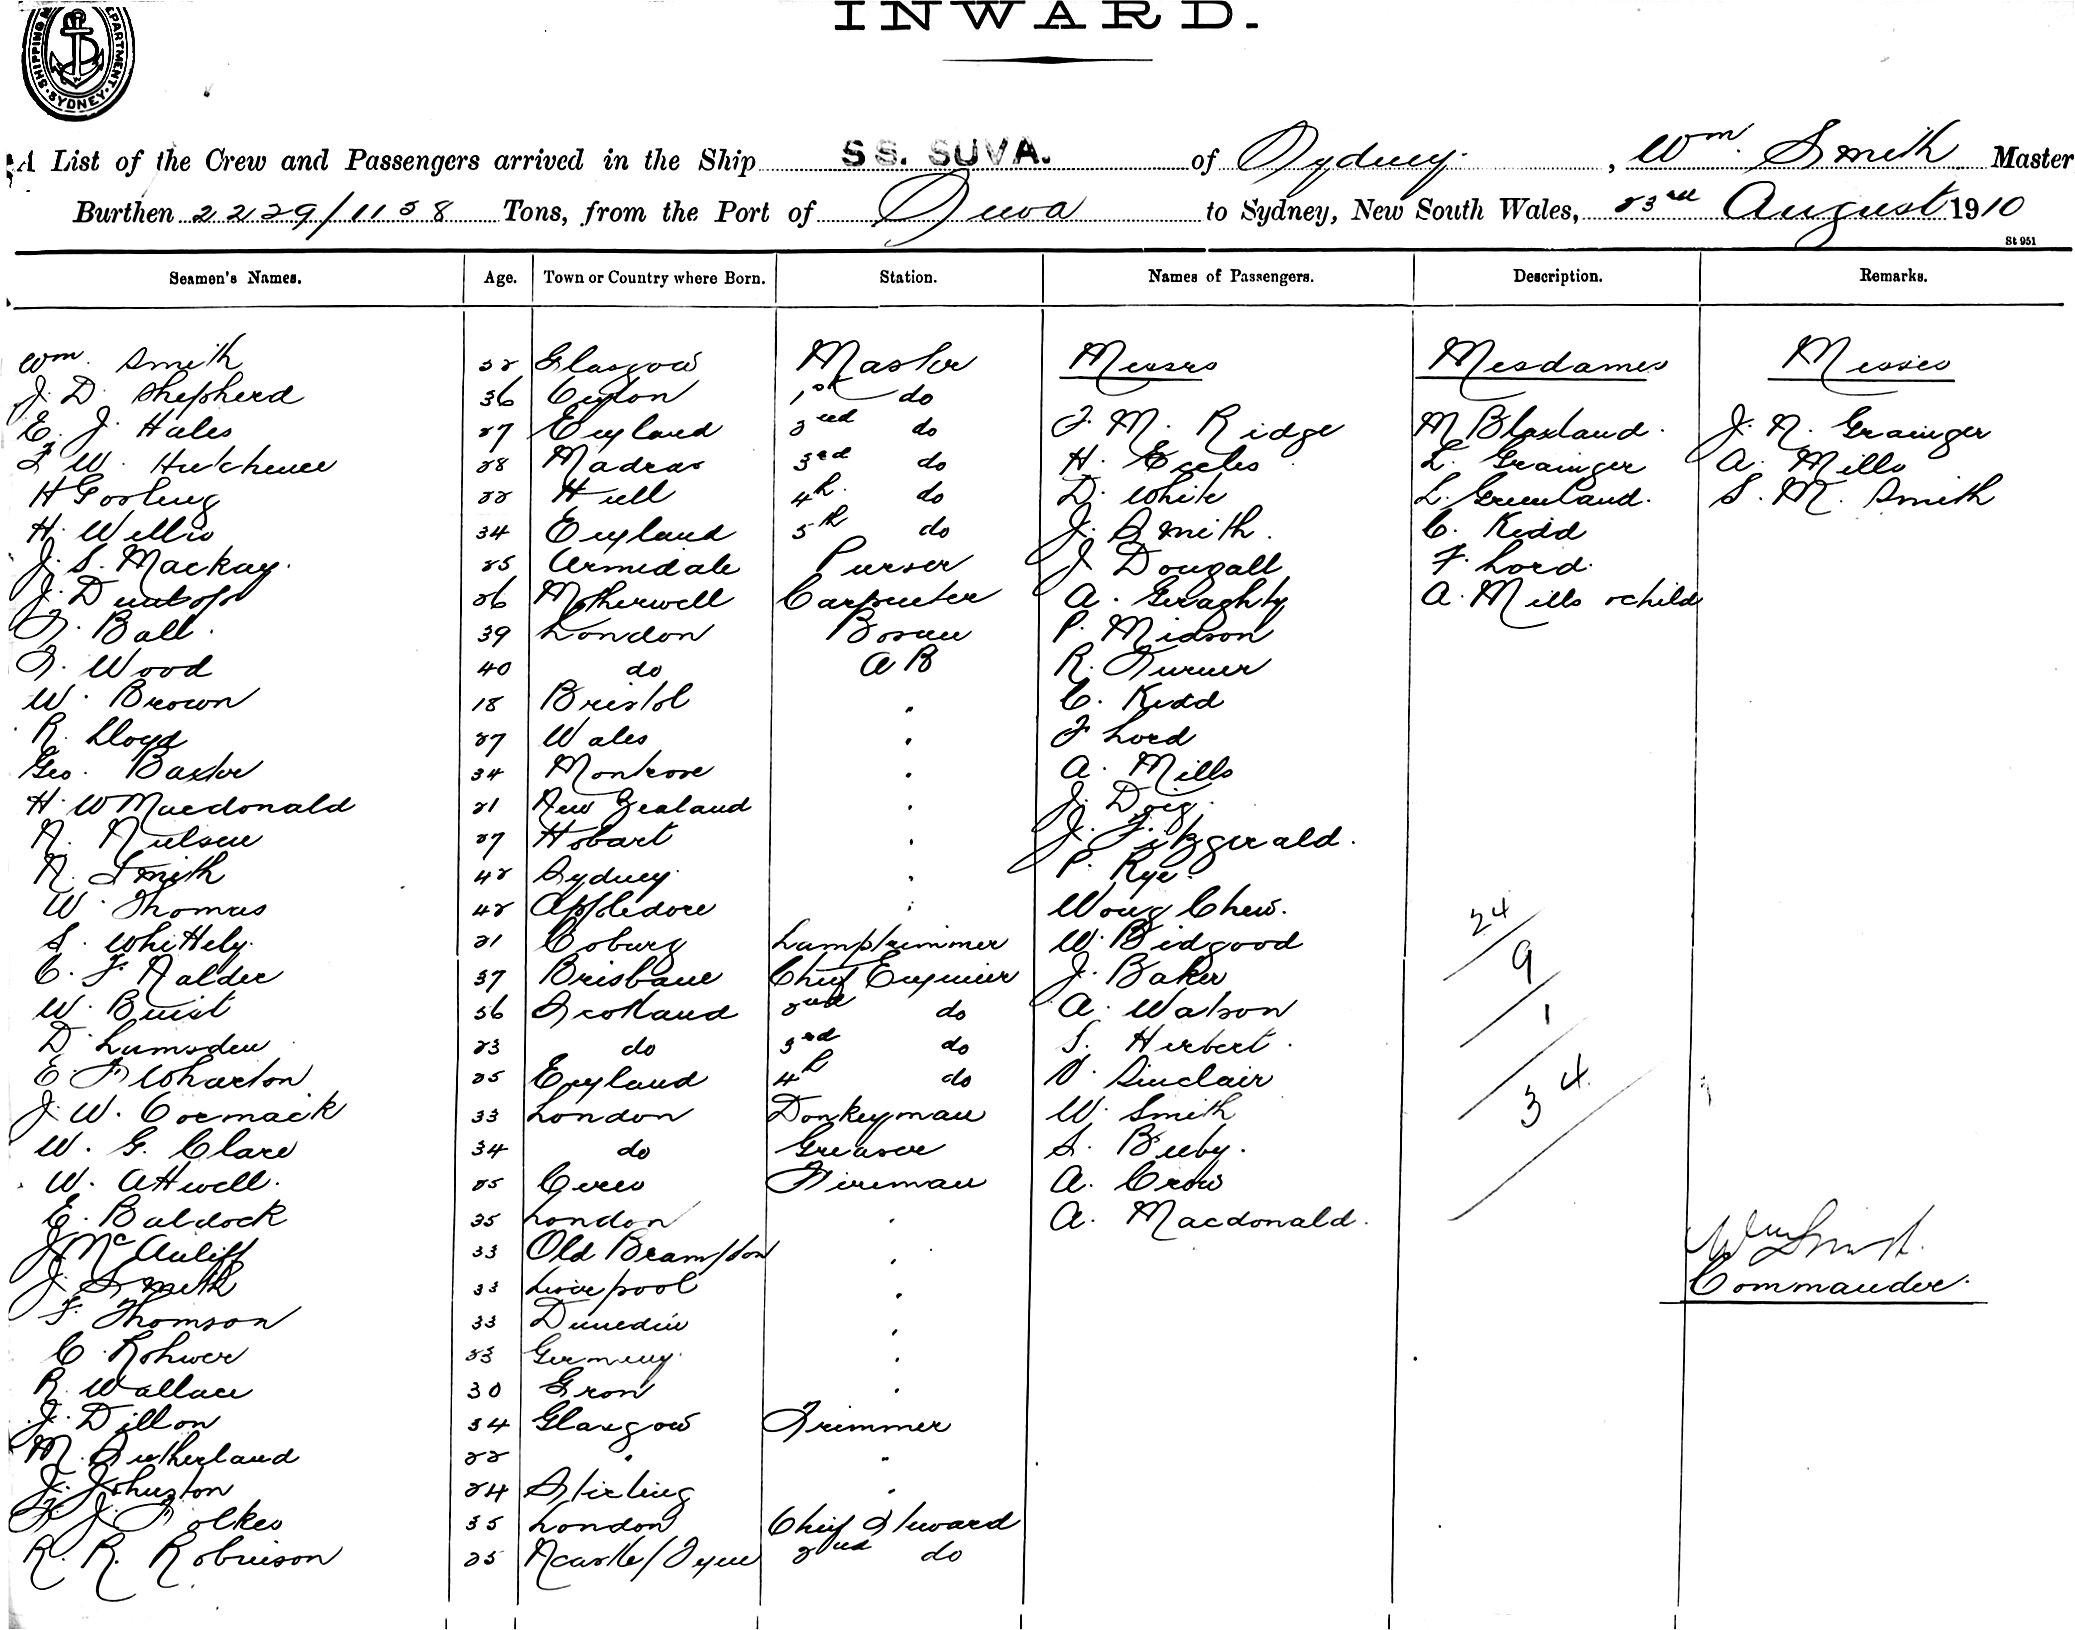 INWARD.
SHIPPING DEPARTMENT. SYDNEY.
A List of the Crew and Passengers arrived in the Ship SS. SUVA. of Sydney. , Wm. Smith Master
Burthen 2229/1158 Tons, from the Port of Suva to Sydney, New South Wales, 23rd August 1910
St 951
Seamen's Names. Age. Town or Country where Born. Station. Names of Passengers. Description. Remarks.
Wm. Smith Glasgow Master Messrs Mesdames Misses
J. D. Shepherd 36 Ceylon 1st do
E. J. Hales 27 England do F. M. Ridge M Blaxland. J. N. Grainger
F W. Hutchence 28 Madras 3rd do H. Eccles L. Grainger A. Mills
H Gosling 22 Hull 4th. do D. White L. Greenland. S. M. Smith
H. Willis 34 England 5th do J. Smith. C. Kidd
J. S. Mackay. 25 Armidale Purser J Dougall F. Lord.
J. Dunlop 26 Motherwell Carpenter A. Geraghty A. Mills & child
F. Ball. 39 London Bosun P. Midson
F. Wood 40 do A B R. Turner
W. Brown 18 Bristol " C. Kidd
R. Lloyd 27 Wales " F Lord
Geo. Baxter 34 Montrose " A. Mills
H. W Macdonald 21 New Zealand " J. Doig.
N. Nielsen 27 Hobart " J. Fitzgerald.
N. Smith 42 Sydney. " P. Rye.
W. Thomas 42 Appledore " Wong Chew.
S. Whittely. 21 Coburg Lamptrimmer W. Bidgood
C. F. Nalder 37 Brisbane Chief Engineer J. Baker
W. Buist 36 Scotland 2nd do A. Watson
D. Lumsden 23 do 3rd do S. Herbert.
E. F Wharton 25 England 4th do V. Sinclair
J. W. Cormack 33 London Donkeyman W. Smith
W. G. Clare 34 do Greaser S. Beeby.
W. Attwell. 25 Fireman A. Crow
E. Baldock 35 London " A. Macdonald.
J McAuliff 33 Old Brampton "
J. Smith 33 Liverpool "
F. Thomson 33 Dunedin "
C. Rohwer 23 Germany. "
R. Wallace 30 "
J. Dillon 34 Glasgow Trimmer
M. Sutherland 22 " "
J. Johnston 24 Stirling "
F. J. Folkes 35 London Chief Steward
R. R. Robinson 25 Ncastle/Tyne 2nd do
24
9
1
34
Wm Smith.
Commander.